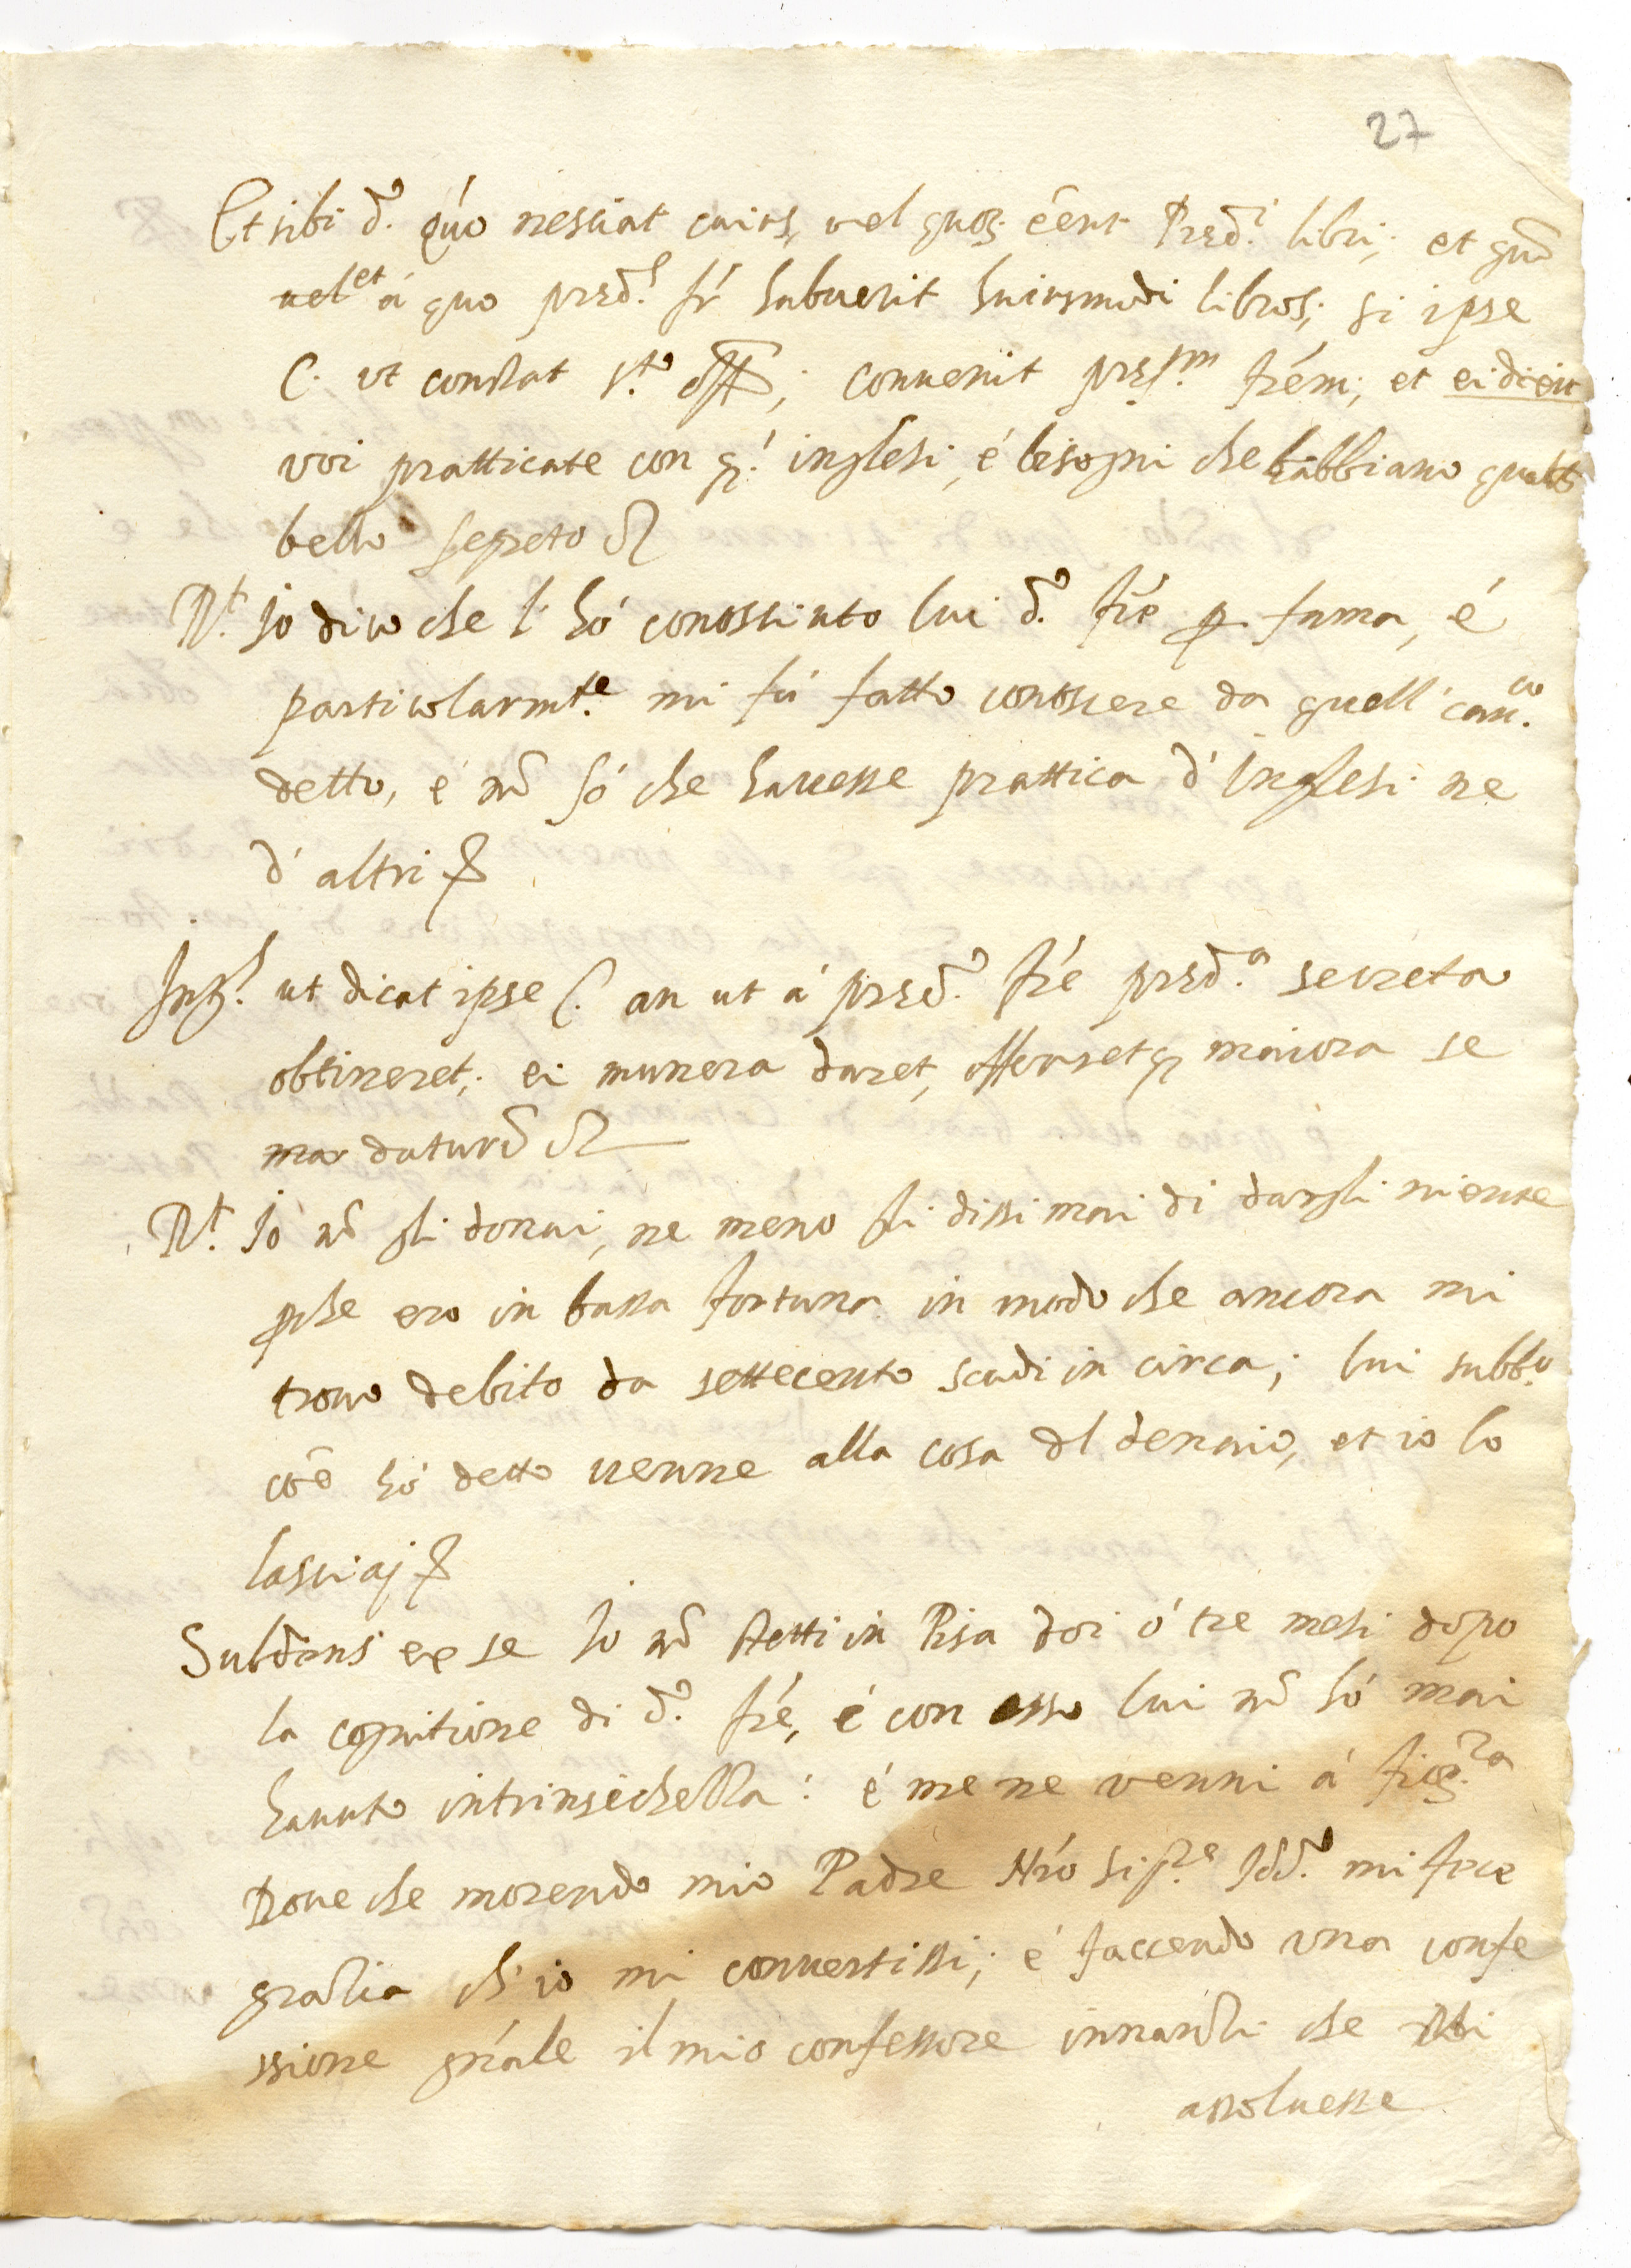 27
Et sibi d.º quo nesciat cuius, vel quor. eent Pred.i libri; et
vel et á quo pred.s fr habuerit huiusmodi libros; si ipse
C. ut constat s.to convenit frém; et ei dicit
voi pratticate con q.i inglesi, é bisogni che habbiano qualc
bello segreto
R.t Io dico che l'hó conossiuto lui d.º fré p fama, é
particolarm.te mi fú fatto conoscere da quell'
detto, é nõ só che havesse prattica d'Inglesi ne
d'altri
Int.s ut dicat ipse C. an ut á pred.º fré pred.a secreta
obtineret; ei munera daret, offerretq maiora se
daturũ
R.t Io nõ gli donai, ne meno gli dissi mai di dargli niente
pche ero in bassa fortuna in modo che ancora mi
trovo debito da settecento scudi in circa; lui subb.o
coe hó detto venne alla cosa dl denaio, et io lo
lasciaj
Subdens ex se Io nõ stetti in Pisa doi ó tre mesi dopo
la cognitione di d.º fré, é con esso lui nõ hó mai
havuto intrinsichezza: é me ne venni á
Dove che morendo mio Padre Nró Sig.re Idd.o mi fece
gratia ch'io mi convertissi; é faccendo una confe
ssione gnále il mio confessore innanzi che mi
assoluesse